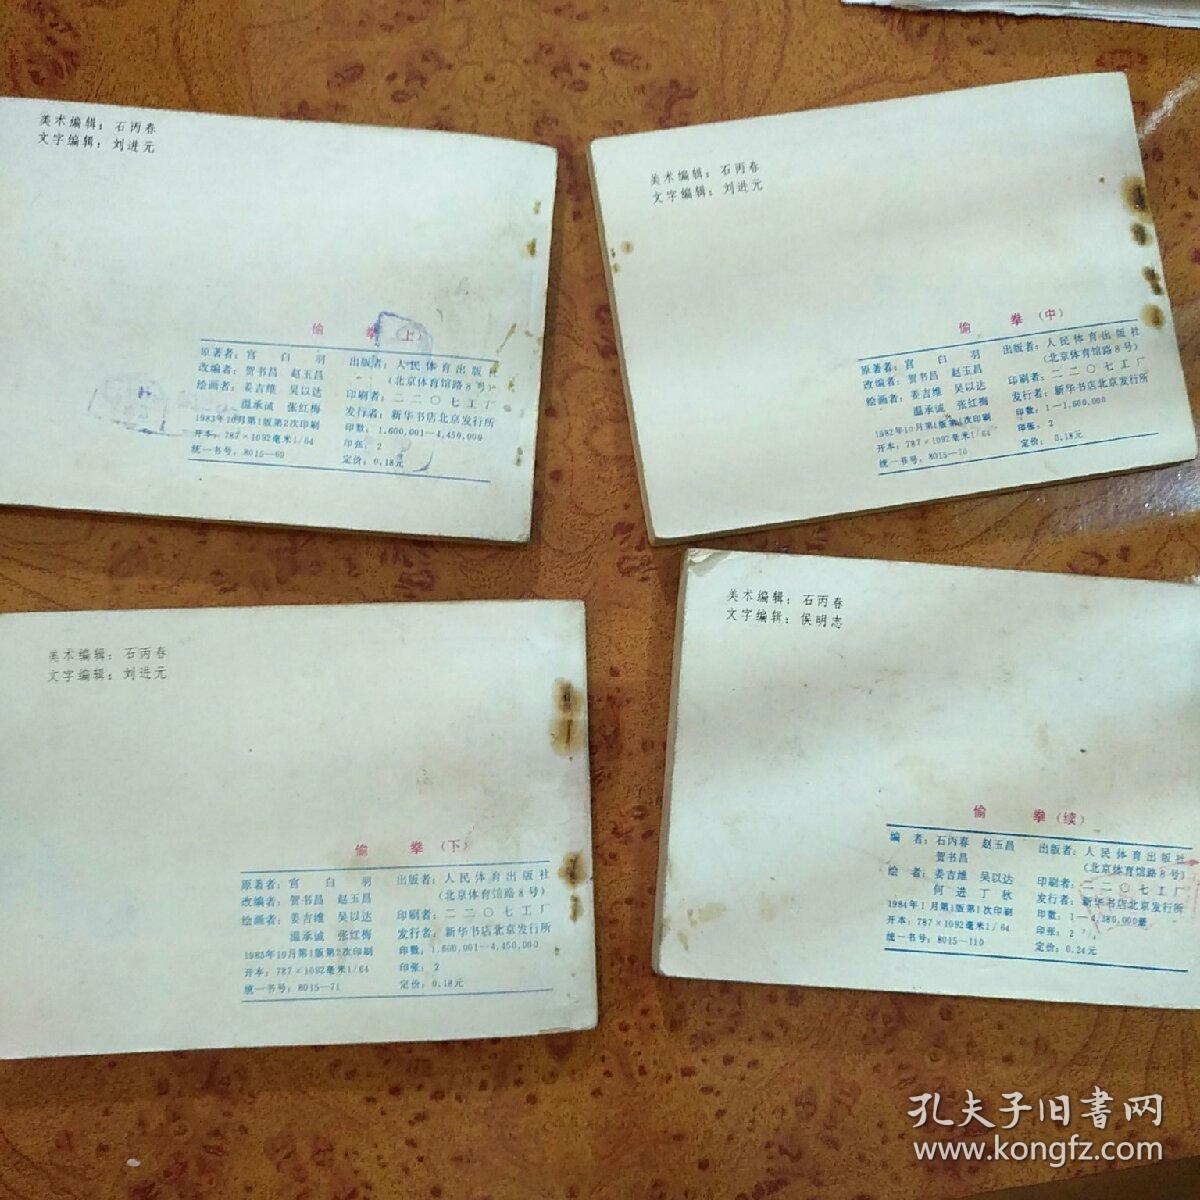 美术编辑：石丙春
文字编辑：刘进元
偷 拳（上）
原著者：宫 白 羽
改编者：贺书昌 赵玉昌
绘画者：姜吉维 吴以达
温承诚 张红梅
1983年10月第1版第2次印刷
开本：787×1092毫米1/64
统一书号：8015—69
出版者：人民体育出版社
（北京体育馆路8号）
印刷者：二二〇七工厂
发行者：新华书店北京发行所
印数：1,600,001—4,450,000
印张：2
定价：0.18元
美术编辑：石丙春
文字编辑：刘进元
偷 拳（中）
原著者：宫 白 羽
改编者：贺书昌 赵玉昌
绘画者：姜吉维 吴以达
温承诚 张红梅
1982年10月第1版第1次印刷
开本：787×1092毫米1/64
统一书号：8015—70
出版者：人民体育出版社
（北京体育馆路8号）
印刷者：二二〇七工厂
发行者：新华书店北京发行所
印数：1—1,600,000
印张：2
定价：0.18元
美术编辑：石丙春
文字编辑：刘进元
偷 拳（下）
原著者：宫 白 羽
改编者：贺书昌 赵玉昌
绘画者：姜吉维 吴以达
温承诚 张红梅
1983年10月第1版第2次印刷
开本：787×1092毫米1/64
统一书号：8015—71
出版者：人民体育出版社
（北京体育馆路8号）
印刷者：二二〇七工厂
发行者：新华书店北京发行所
印数：1,600,001—4,450,000
印张：2
定价：0.18元
美术编辑：石丙春
文字编辑：侯明志
偷 拳（续）
编 者：石丙春 赵玉昌
贺书昌
绘 者：姜吉维 吴以达
何 进 丁 秋
1984年1月第1版第1次印刷
开本：787×1092毫米1/64
统一书号：8015—110
出版者：人民体育出版社
（北京体育馆路8号）
印刷者：二二〇七工厂
发行者：新华书店北京发行所
印数：1—4,380,000册
印张：2
定价：0.24元
孔夫子旧书网
www.kongfz.com